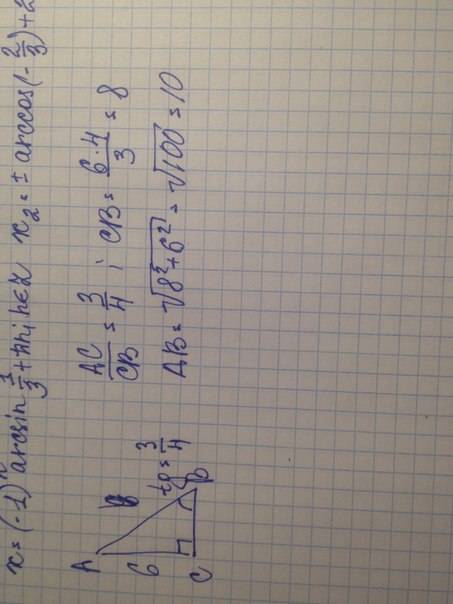 x = (-1)ⁿ arcsin 1/3 + πn, n∈Z x₂ = ± arccos(-2/3) + 2
A
6
C
B
tg = 3/4
AC/CB = 3/4 ; CB = 6·4/3 = 8
AB = √8² + 6² = √100 = 10